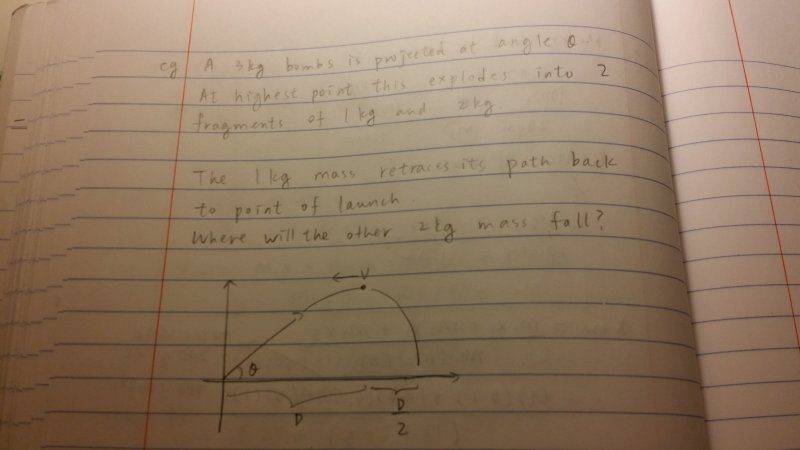 eg A 3kg bombs is projected at angle θ.
At highest point this explodes into 2
fragments of 1kg and 2kg
The 1kg mass retraces its path back
to point of launch.
Where will the other 2kg mass fall?
V
θ
D
D
2